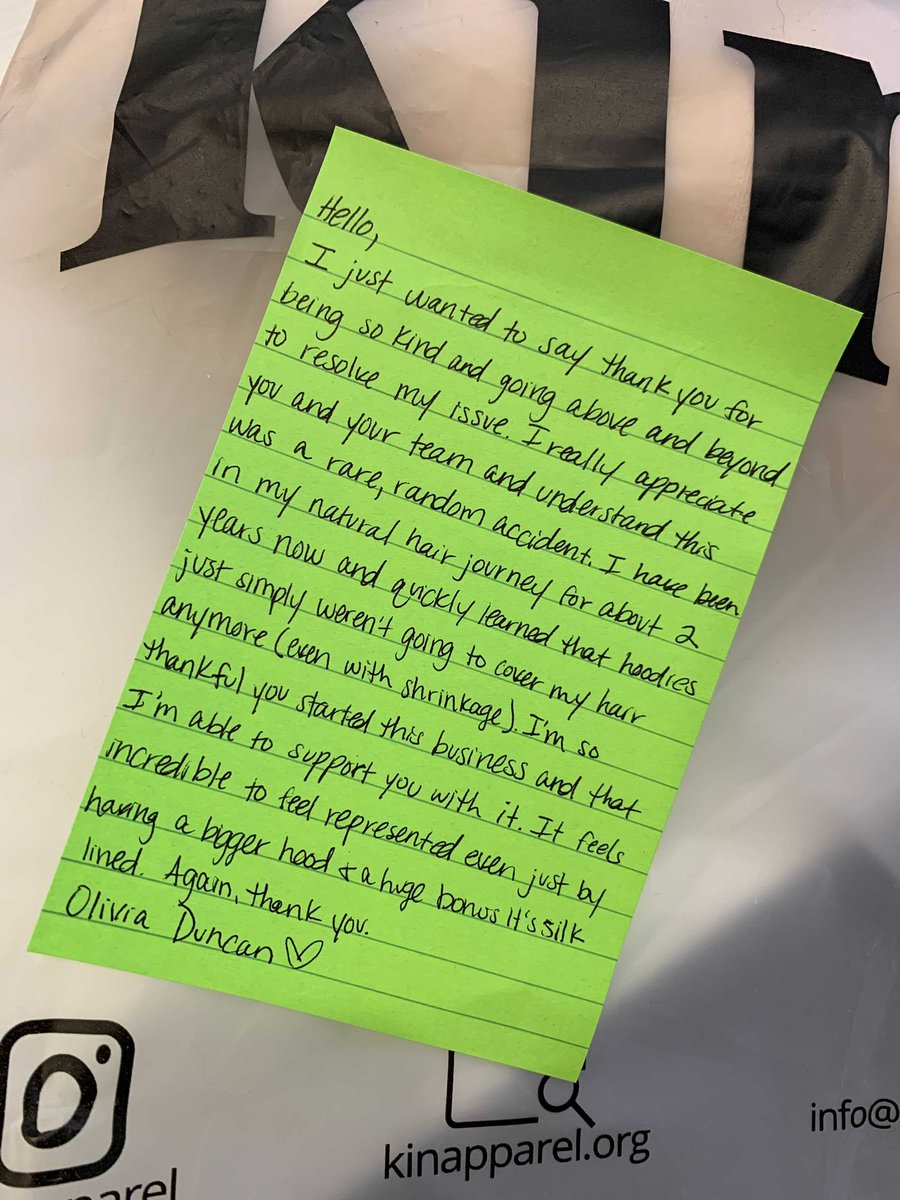 Kin
Hello,
I just wanted to say thank you for
being so kind and going above and beyond
to resolve my issue. I really appreciate
you and your team and understand this
was a rare, random accident. I have been
in my natural hair journey for about 2
years now and quickly learned that hoodies
just simply weren't going to cover my hair
anymore (even with shrinkage). I'm so
thankful you started this business and that
I'm able to support you with it. It feels
incredible to feel represented even just by
having a bigger hood & a huge bonus it's silk
lined. Again, thank you.
Olivia Duncan ♡
parel
kinapparel.org
info@